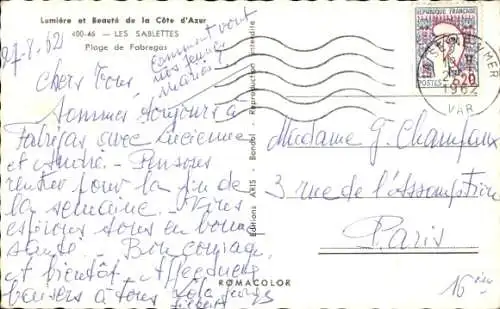 Lumière et Beauté de la Côte d'Azur
400-46 — LES SABLETTES
Plage de Fabregas
27.8.62
Comment vont
nos jeunes
mariés
Chers Tous
Sommes toujours à
Fabregas avec Lucienne
et André. - Pensons
rentrer pour la fin de
la semaine. - Vous
espérons tous en bonne
santé. Bon courage
et bientôt. Affectueux
baisers à tous
Editions ARIS - Bandol - Reproduction interdite
ROMACOLOR
REPUBLIQUE FRANÇAISE
POSTES 0,20
LA SEYNE S/MER
1962
VAR
Madame G. Champaux
3 rue de l'Assomption
Paris
16 ème